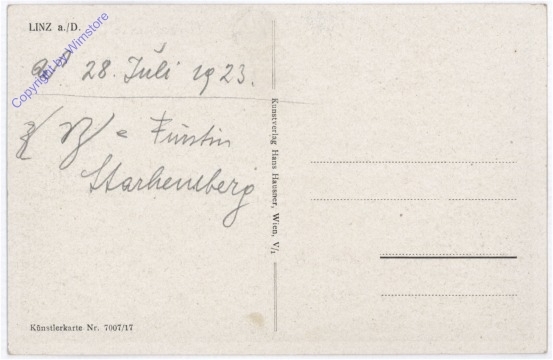 LINZ a./D.
Copyright by Wimstore
28. Juli 1923.
Fürstin
Starhemberg
Kunstverlag Hans Hausner, Wien, V/1
Künstlerkarte Nr. 7007/17